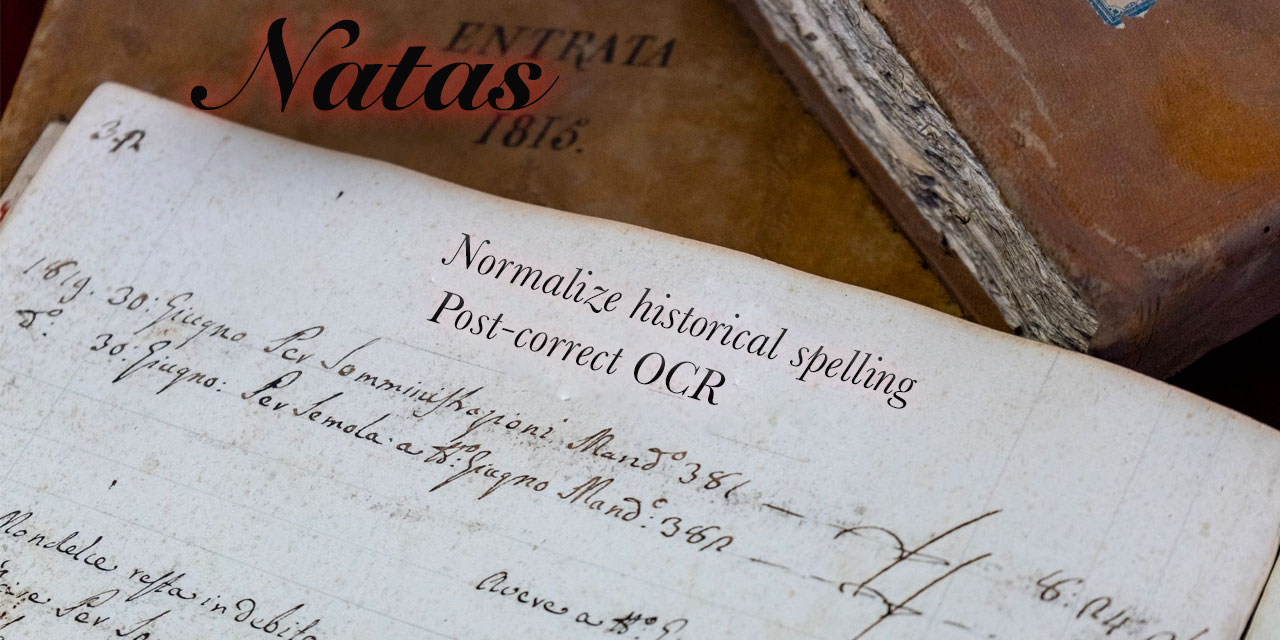 Natas
ENTRATA
1815.
Normalize historical spelling
Post-correct OCR
1819. 30: Giugno Per Somministrazioni Mand.º 381
d.º 30: Giugno: Per Semola a Giugno Mand.
resta in debito
Avere a